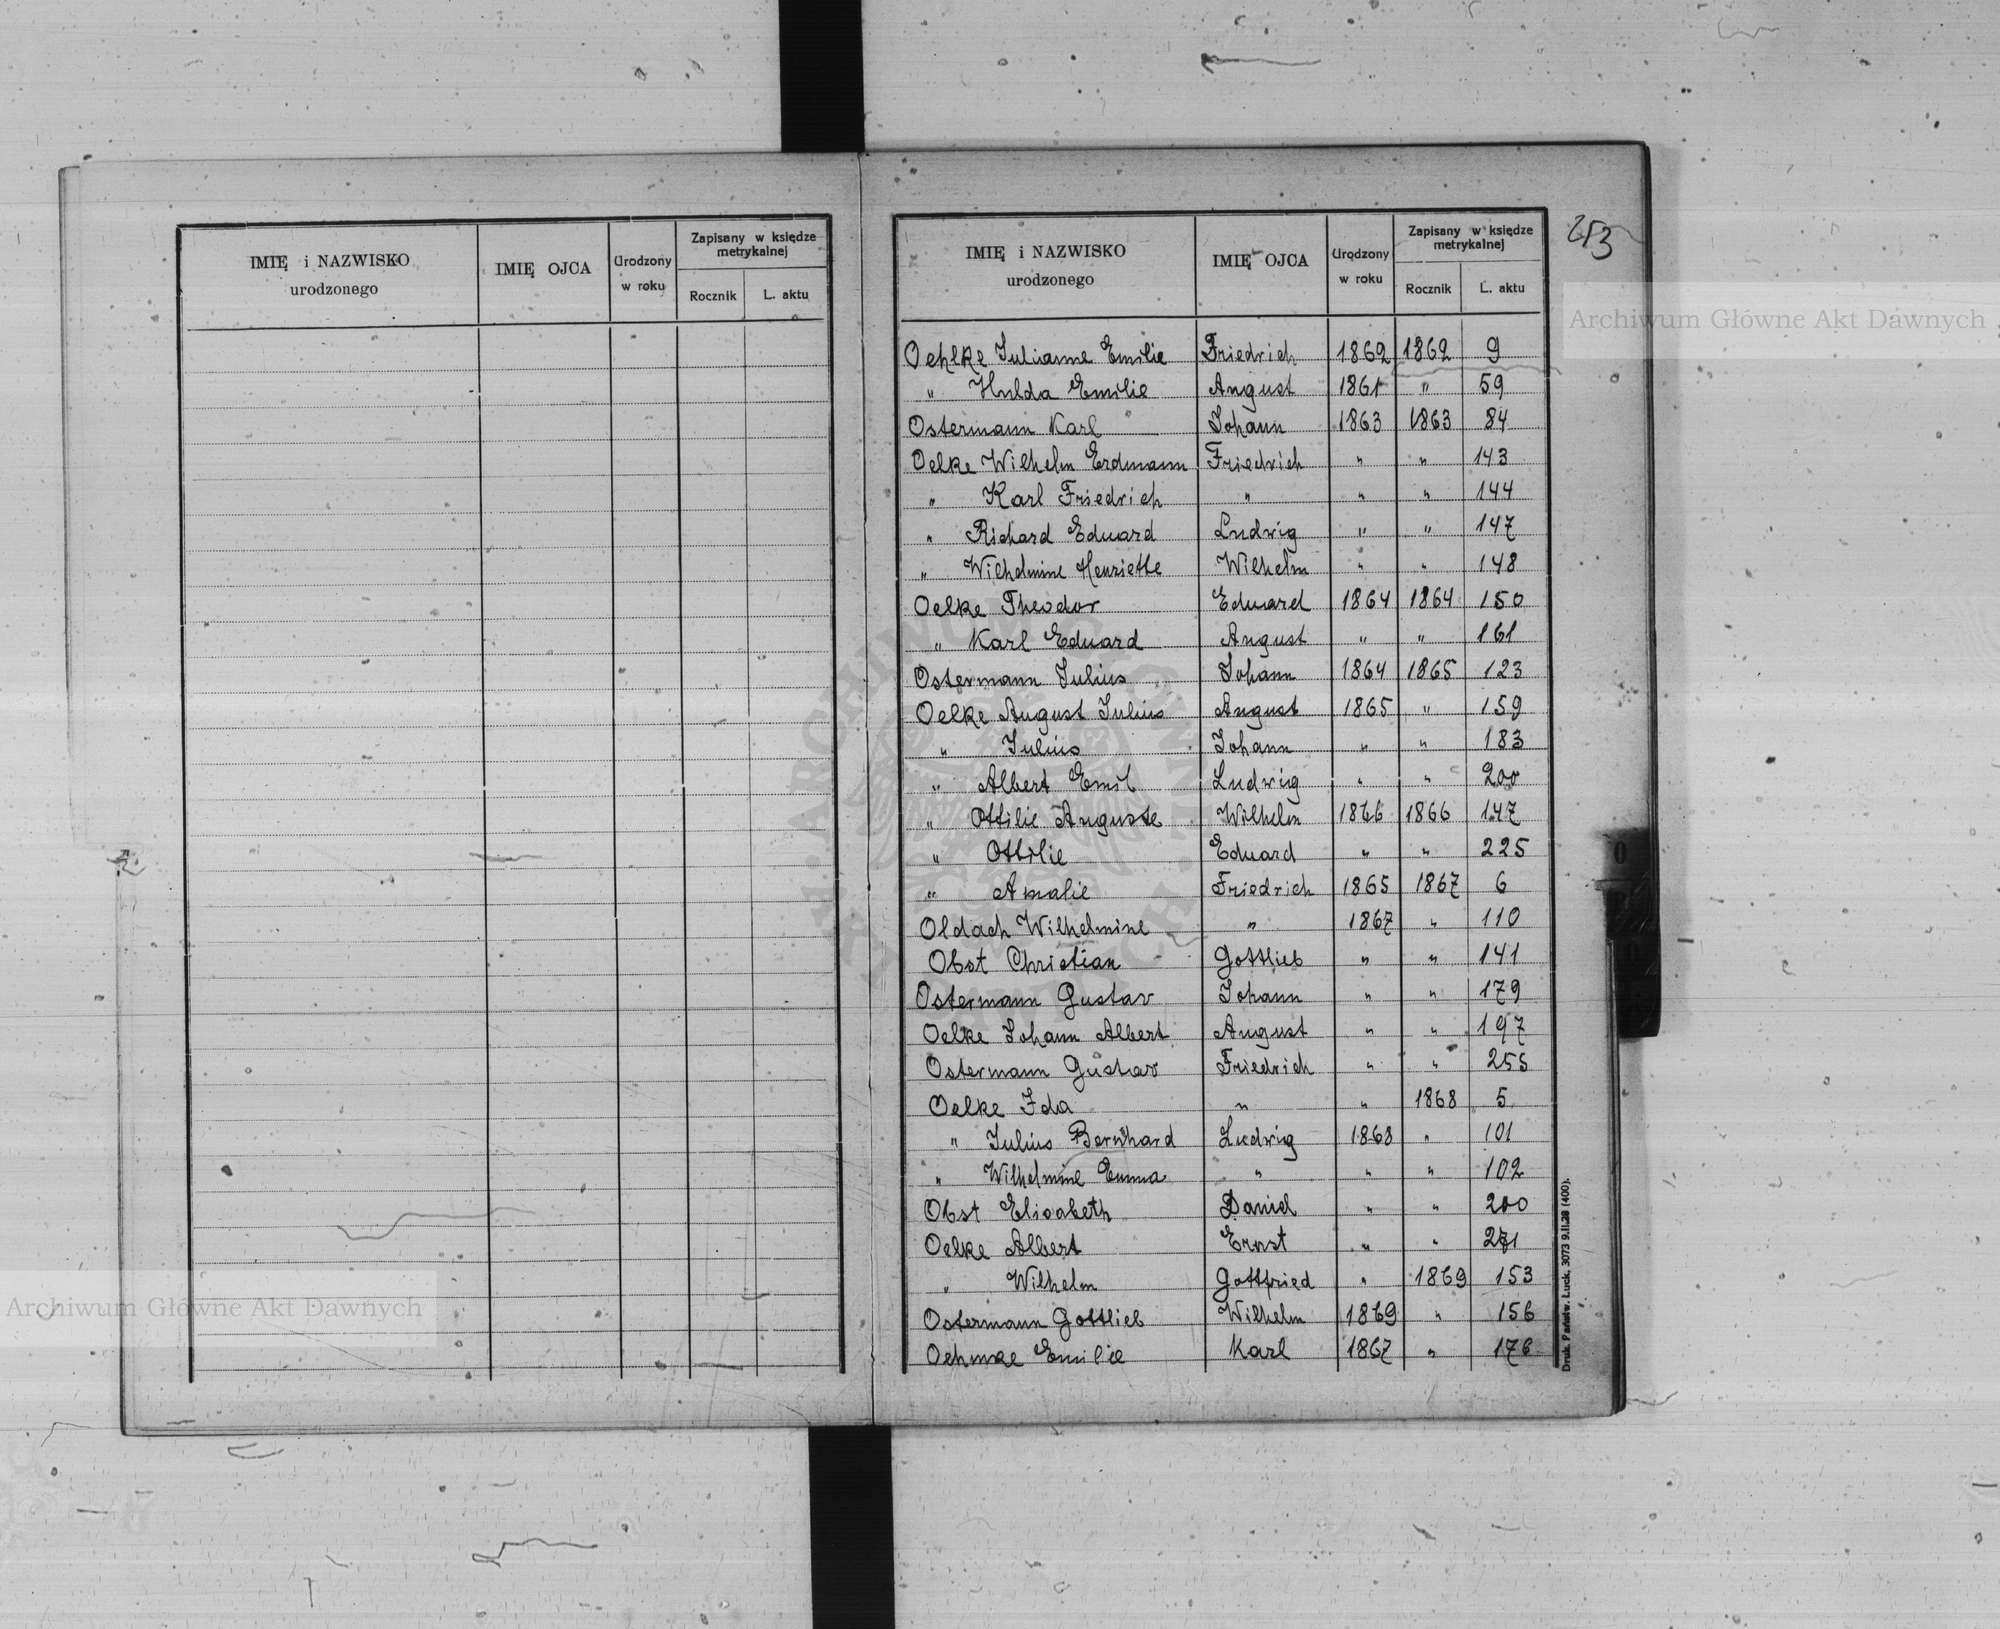 IMIĘ i NAZWISKO urodzonego IMIĘ OJCA Urodzony w roku Zapisany w księdze metrykalnej Rocznik L. aktu
IMIĘ i NAZWISKO urodzonego IMIĘ OJCA Urodzony w roku Zapisany w księdze metrykalnej Rocznik L. aktu
253
Archiwum Główne Akt Dawnych
Oehlke Julianne Emilie Friedrich 1862 1862 9
" Hulda Emilie August 1861 " 59
Ostermann Karl Johann 1863 1863 84
Oelke Wilhelm Erdmann Friedrich " " 143
" Karl Friedrich " " " 144
" Richard Eduard Ludwig " " 147
" Wilhelmine Henriette Wilhelm " " 148
Oelke Theodor Eduard 1864 1864 150
" Karl Eduard August " " 161
Ostermann Julius Johann 1864 1865 123
Oelke August Julius August 1865 " 159
" Julius Johann " " 183
" Albert Emil Ludwig " " 200
" Ottilie Auguste Wilhelm 1866 1866 147
" Ottilie Eduard " " 225
" Amalie Friedrich 1865 1867 6
Oldach Wilhelmine " 1867 " 110
Obst Christian Gottlieb " " 141
Ostermann Gustav Johann " " 179
Oelke Johann Albert August " " 197
Ostermann Gustav Friedrich " " 255
Oelke Ida " " 1868 5
" Julius Bernhard Ludwig 1868 " 101
" Wilhelmine Emma " " " 102
Obst Elisabeth Daniel " " 200
Oelke Albert Ernst " "
" Wilhelm Gottfried " 1869 153
Ostermann Gottlieb Wilhelm 1869 " 156
Oehmke Emilie Karl 1867 " 176
Druk. Państw. Łuck. 3073 9.II.28 (400).
Archiwum Główne Akt Dawnych